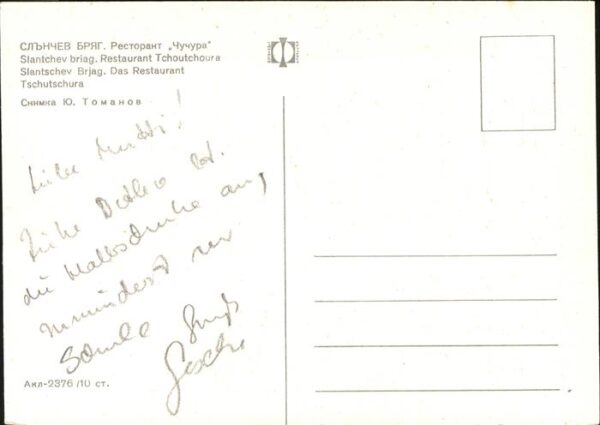 СЛЪНЧЕВ БРЯГ. Ресторант „Чучура"
Slantchev briag. Restaurant Tchoutchoura
Slantschev Brjag. Das Restaurant
Tschutschura
Снимка Ю. Томанов
Liebe Mutti!
Ziehe Detlev
die Halbschuhe an,
zumindest zur
Schule Gruß
Акл-2376/10 ст.